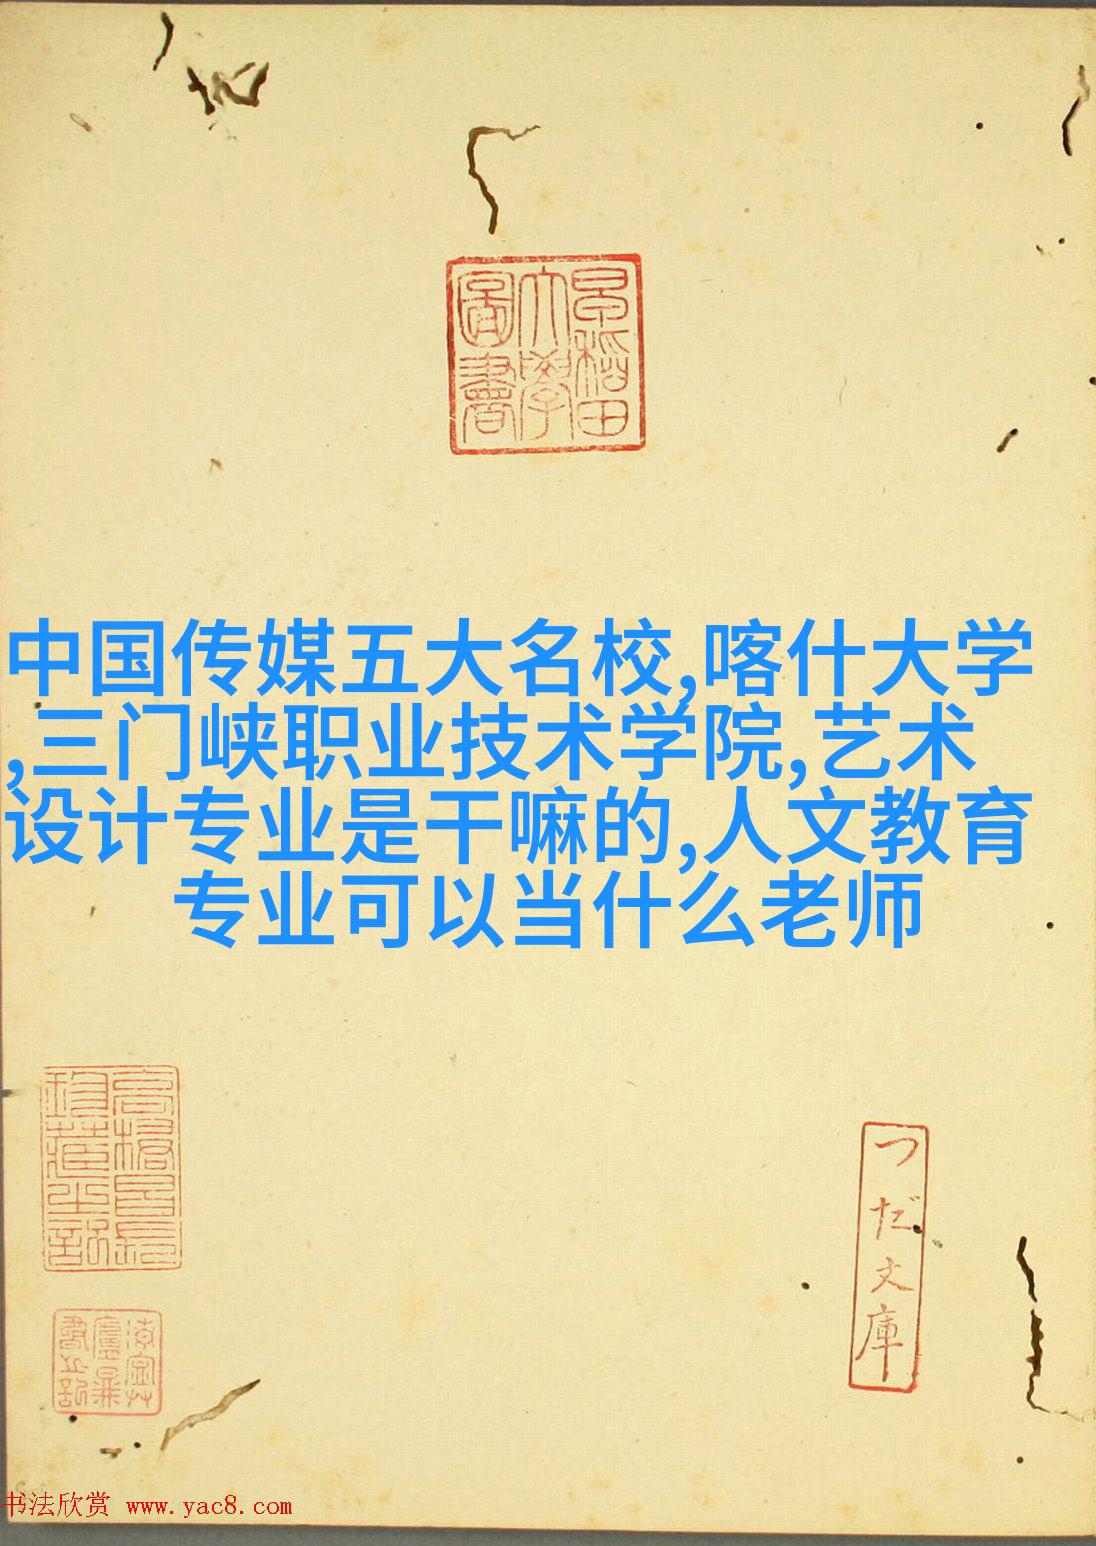 早稻田
大學
圖書
中国传媒五大名校,喀什大学
,三门峡职业技术学院,艺术
设计专业是干嘛的,人文教育
专业可以当什么老师
つだ文庫
书法欣赏 www.yac8.com